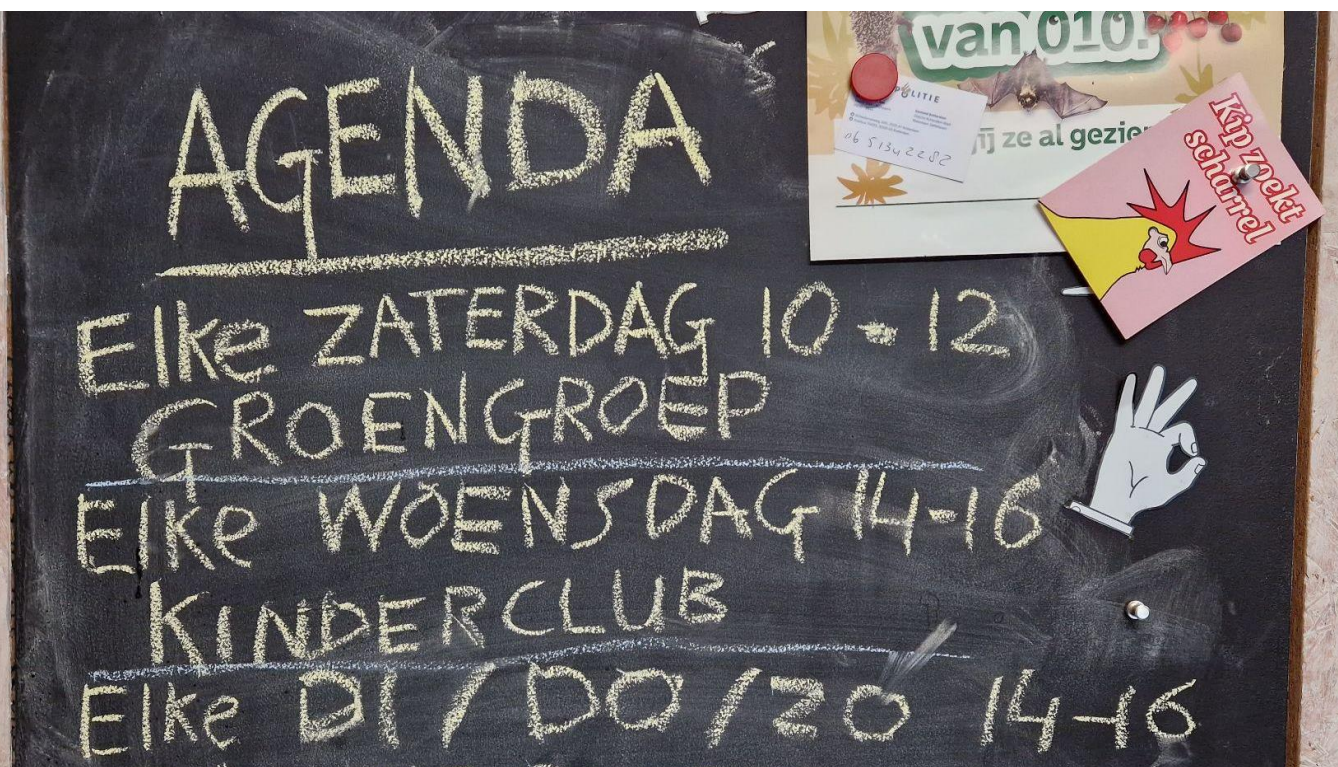 AGENDA
Elke ZATERDAG 10-12
GROENGROEP
Elke WOENSDAG 14-16
KINDERCLUB
Elke DI/DO/ZO 14-16
van 010.
POLITIE
06 51342282
jij ze al gezien
Kip zoekt
scharrel